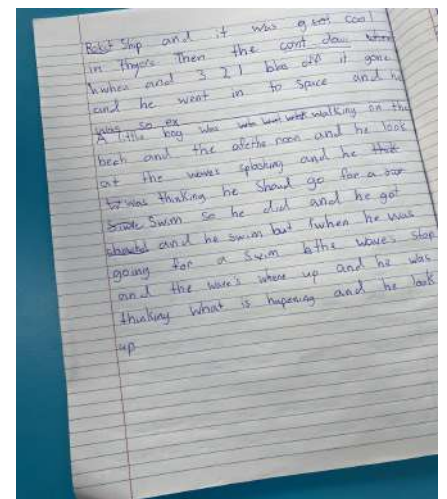 Rokit Ship and it was g so cool
in thgere Then the cont dow when
hwhen and 3 2 1 blas off it gone
and he went in to space and he
was so ex
A little boy was walking on the
bech and the afethe noon and he look
at the waves splashing and he that
to was thinking he shoud go for a
Swim so he did and he got
and he swim but when he was
going for a swim the waves stop
and the wave's where up and he was
thinking what is hapening and he look
up